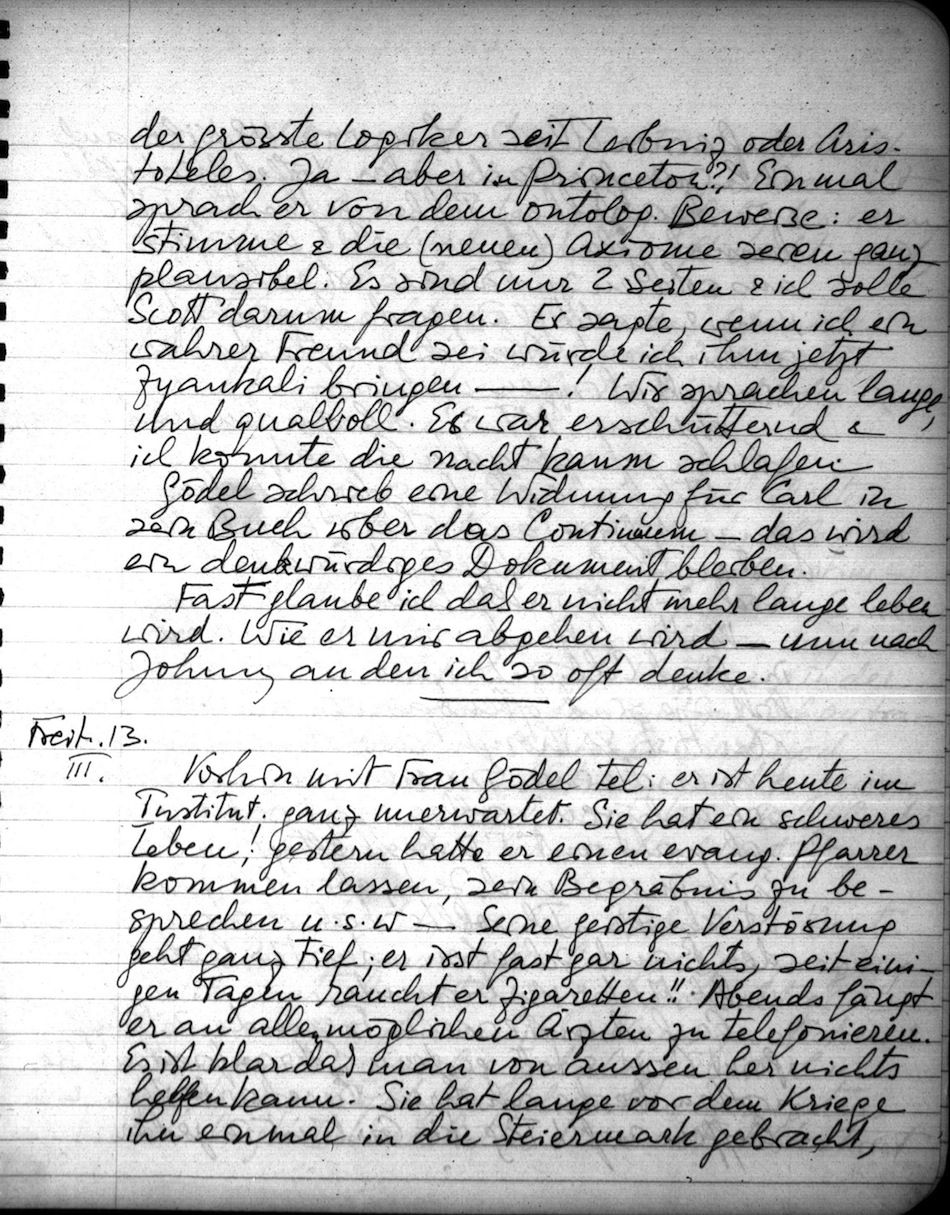 der grösste Logiker seit Leibniz oder Aris-
toteles. Ja — aber in Princeton?! Einmal
sprach er von dem ontolog. Beweise: er
stimme & die (neuen) Axiome seien ganz
plausibel. Es sind nur 2 Seiten & ich solle
Scott darum fragen. Er sagte, wenn ich ein
wahrer Freund sei würde ich ihm jetzt
Zyankali bringen ——! Wir sprachen lange,
und qualvoll. Es war erschütternd &
ich konnte die Nacht kaum schlafen
Gödel schrieb eine Widmung für Carl in
sein Buch über das Continuum — das wird
ein denkwürdiges Dokument bleiben.
Fast glaube ich daß er nicht mehr lange leben
wird. Wie er mir abgehen wird — nun nach
Johnny an den ich so oft denke.
Freit. 13.
III.
Vorhin mit Frau Gödel tel: er ist heute im
Institut. ganz unerwartet. Sie hat ein schweres
Leben! gestern hatte er einen evang. Pfarrer
kommen lassen, sein Begräbnis zu be-
sprechen u.s.w — Seine geistige Verstörung
geht ganz tief; er isst fast gar nichts, seit eini-
gen Tagen raucht er Zigaretten!! Abends fängt
er an allen möglichen Ärzten zu telefonieren.
Es ist klar daß man von aussen her nichts
helfen kann. Sie hat lange vor dem Kriege
ihn einmal in die Steiermark gebracht,